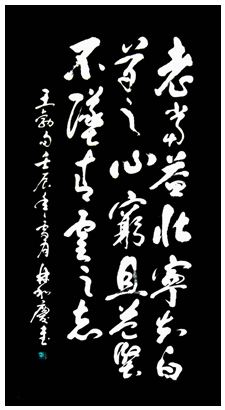 老當益壯寧知白
首之心窮且益堅
不墜青雲之志
王勃句壬辰年雪月慶書